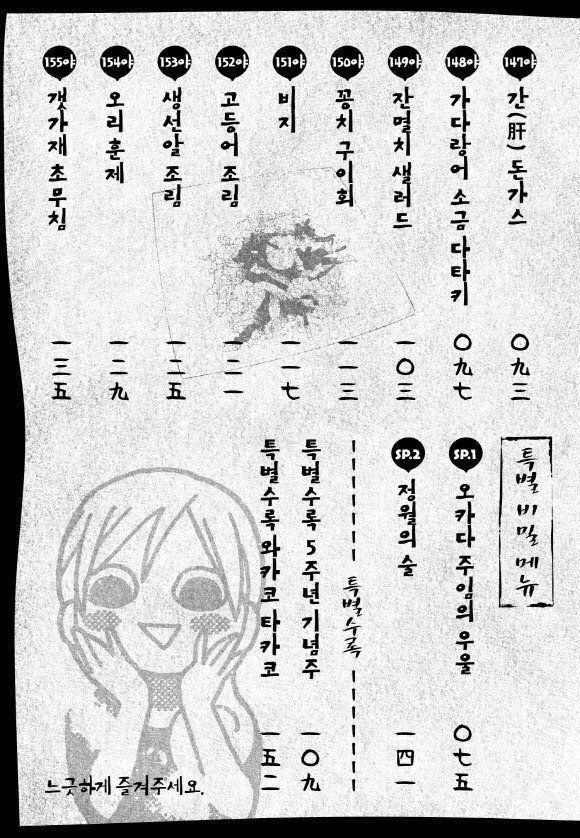 147야 간(肝) 돈가스 〇九三
148야 가다랑어 소금 다타키 〇九七
149야 잔멸치 샐러드 一〇三
150야 꽁치 구이회 一一三
151야 비지 一一七
152야 고등어 조림 一二一
153야 생선알 조림 一二五
154야 오리 훈제 一二九
155야 갯가재 초무침 一三五
특별 비밀 메뉴
SP.1 오카다 주임의 우울 〇七五
SP.2 정월의 술 一四一
특별수록
특별수록 5주년 기념주 一〇九
특별수록 와카코타카코 一五二
느긋하게 즐겨주세요.